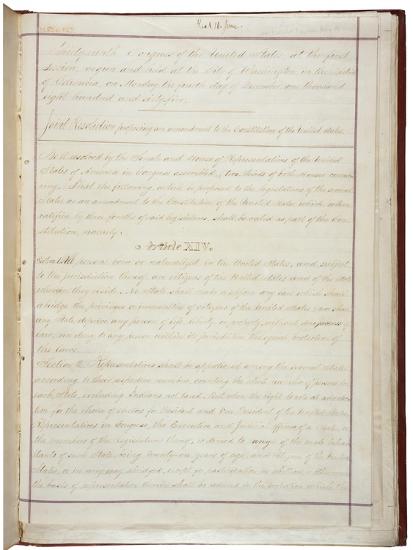 Thirty-ninth Congress of the United States, at the first
session, begun and held at the City of Washington, in the District
of Columbia, on Monday the fourth day of December, one thousand
eight hundred and sixty-five.
Joint Resolution proposing an amendment to the Constitution of the United States.
Be it resolved by the Senate and House of Representatives of the United
States of America in Congress assembled, two thirds of both Houses concur-
ring, That the following article be proposed to the legislatures of the several
States as an amendment to the Constitution of the United States, which, when
ratified by three fourths of said legislatures, shall be valid as part of the Con-
stitution, namely:
Article XIV.
Section 1. All persons born or naturalized in the United States, and subject
to the jurisdiction thereof, are citizens of the United States and of the State
wherein they reside. No State shall make or enforce any law which shall
abridge the privileges or immunities of citizens of the United States; nor shall
any State deprive any person of life, liberty, or property, without due process of
law; nor deny to any person within its jurisdiction the equal protection of
the laws.
Section 2. Representatives shall be apportioned among the several States
according to their respective numbers, counting the whole number of persons in
each State, excluding Indians not taxed. But when the right to vote at any elec-
tion for the choice of electors for President and Vice President of the United States,
Representatives in Congress, the Executive and Judicial officers of a State, or
the members of the Legislature thereof, is denied to any of the male inhabi-
tants of such State, being twenty-one years of age, and citizens of the United
States, or in any way abridged, except for participation in rebellion, or other crime,
the basis of representation therein shall be reduced in the proportion which the